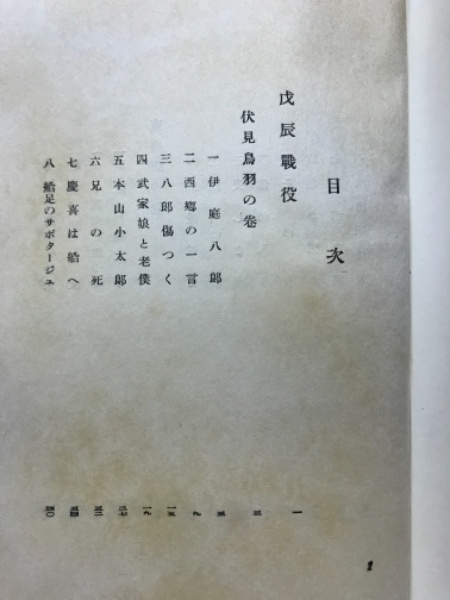 目次
戊辰戰役 一
伏見鳥羽の卷 三
一 伊庭八郎 三
二 西郷の一言 九
三 八郎傷つく 一五
四 武家娘と老僕 一九
五 本山小太郎 二七
六 兄の死 三二
七 慶喜は船へ
八 船足のサボタージユ 四〇